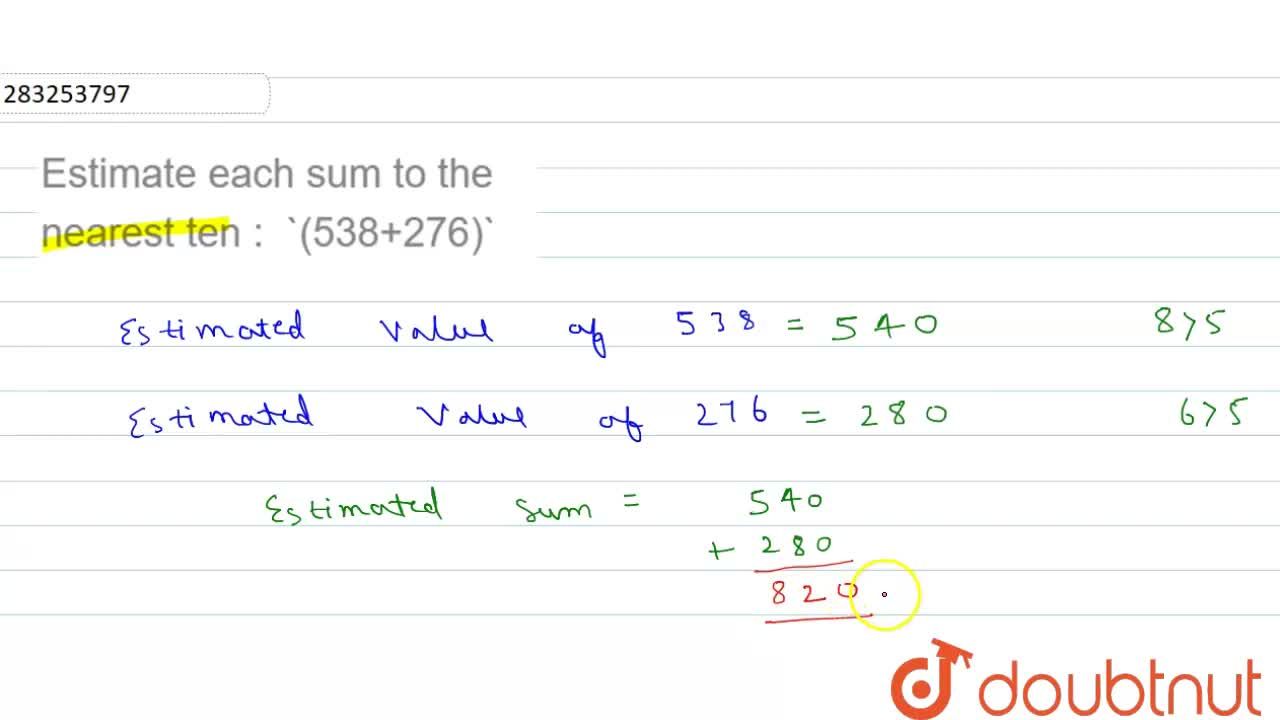 283253797
Estimate each sum to the
nearest ten : `(538+276)`
Estimated value of 538 = 540 8>5
Estimated value of 276 = 280 6>5
Estimated sum = 540
+ 280
820
doubtnut